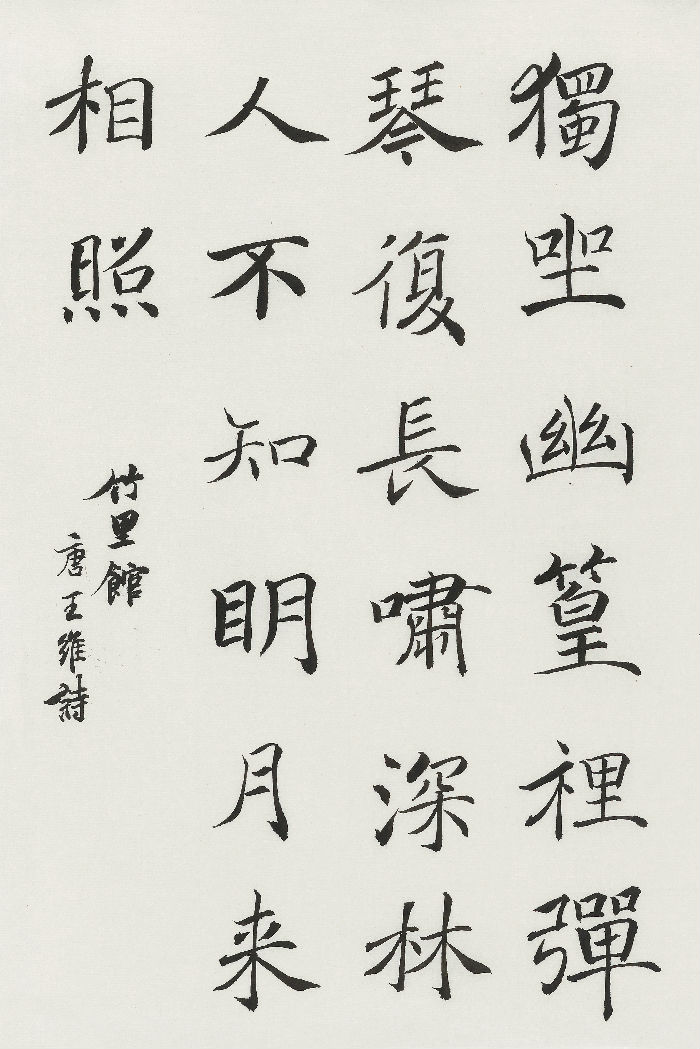 獨坐幽篁裡彈
琴復長嘯深林
人不知明月来
相照
竹里館
唐王維詩